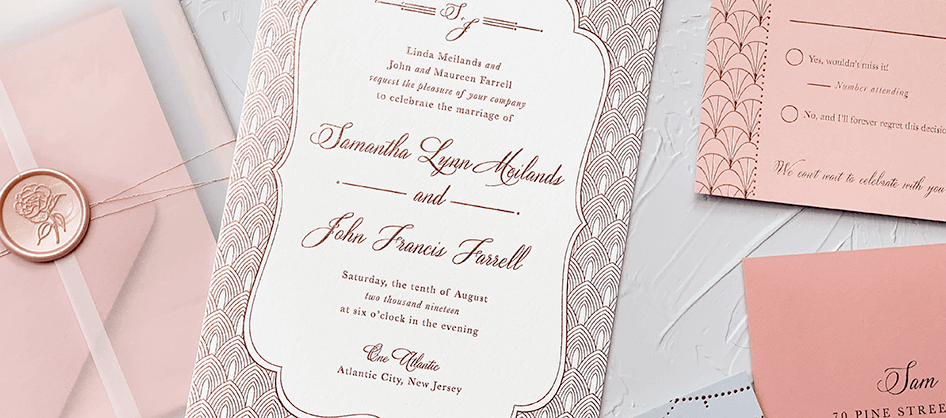 S
J
Linda Meilands and
John and Maureen Farrell
request the pleasure of your company
to celebrate the marriage of
Samantha Lynn Meilands
and
John Francis Farrell
Saturday, the tenth of August
two thousand nineteen
at six o'clock in the evening
One Atlantic
Atlantic City, New Jersey
Yes, wouldn't miss it!
Number attending
No, and I'll forever regret this decision
We can't wait to celebrate with you
Sam
70 PINE STREE